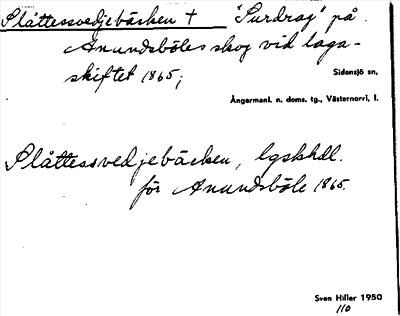 Slåttessvedjebäcken † "Surdrag" på
Anundsböles skog vid laga-
skiftet 1865;
Sidensjö sn,
Ångermanl. n. doms. tg., Västernorrl, l.
Slåttessvedjebäcken, lgskhdl.
för Anundsböle 1865.
Sven Hiller 1950
110